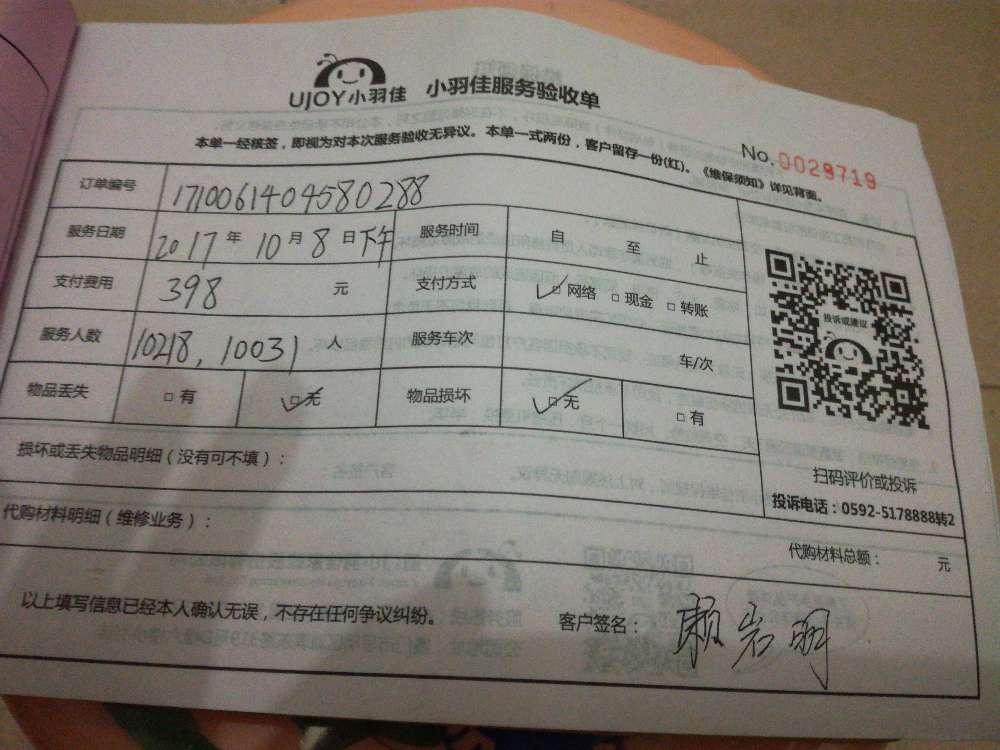 UJOY小羽佳 小羽佳服务验收单
No.0029719
本单一经核签，即视为对本次服务验收无异议。本单一式两份，客户留存一份(红)。《维保须知》详见背面。
订单编号 1710061404580288
服务日期 2017年10月8日下午 服务时间 自 至 止
支付费用 398 元 支付方式 ✓□网络 □现金 □转账
服务人数 10218, 10031 人 服务车次 车/次
物品丢失 □有 ✓□无 物品损坏 ✓□无 □有
投诉或建议
扫码评价或投诉
投诉电话：0592-5178888转2
损坏或丢失物品明细（没有可不填）：
代购材料明细（维修业务）：
代购材料总额： 元
以上填写信息已经本人确认无误，不存在任何争议纠纷。
客户签名：赖岩明